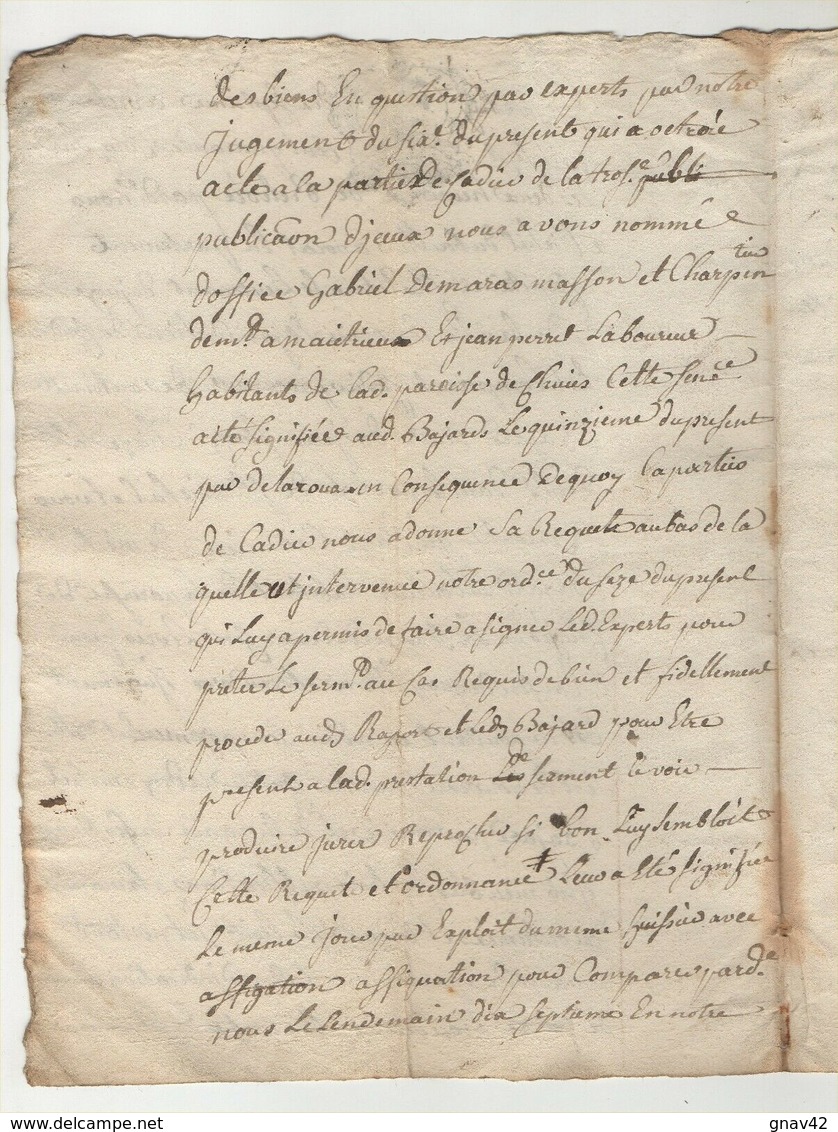 des biens En question par experts par notre
jugement du six.e du present qui a octroié
acte a la partie de Cadier de la trois.e publi
publicaõn d'jceux nous avons nommé
doffice Gabriel Demaras masson et Charpen
tier
dem.t a Et jean perret Laboureur
habitants de lad. paroisse de Cette sen.ce
a eté signifiée aud. Bajards Le quinzieme du present
par Delaroua en Consequence Dequoy La partie
de Cadier nous a donné Sa Requete au bas de la
quelle et jntervenue notre ord.ce du seze du present
qui Luy a permis de faire asigner Led. Experts pour
préter Le serm.t au Cas Requis de bien et fidellement
proceder aud. Raport et Led. Bajard pour Etre
present a lad. prestation de serment le voir
produire jurer Reprocher si bon Luy sembloit
Cette Requet et ordonnance Leur a Eté signifiée
Le meme jour par Exploit du meme huissier avec
assigation assignation pour Comparer pard.t
nous Le Lendemain dix septieme En notre
www.delcampe.net
gnav42